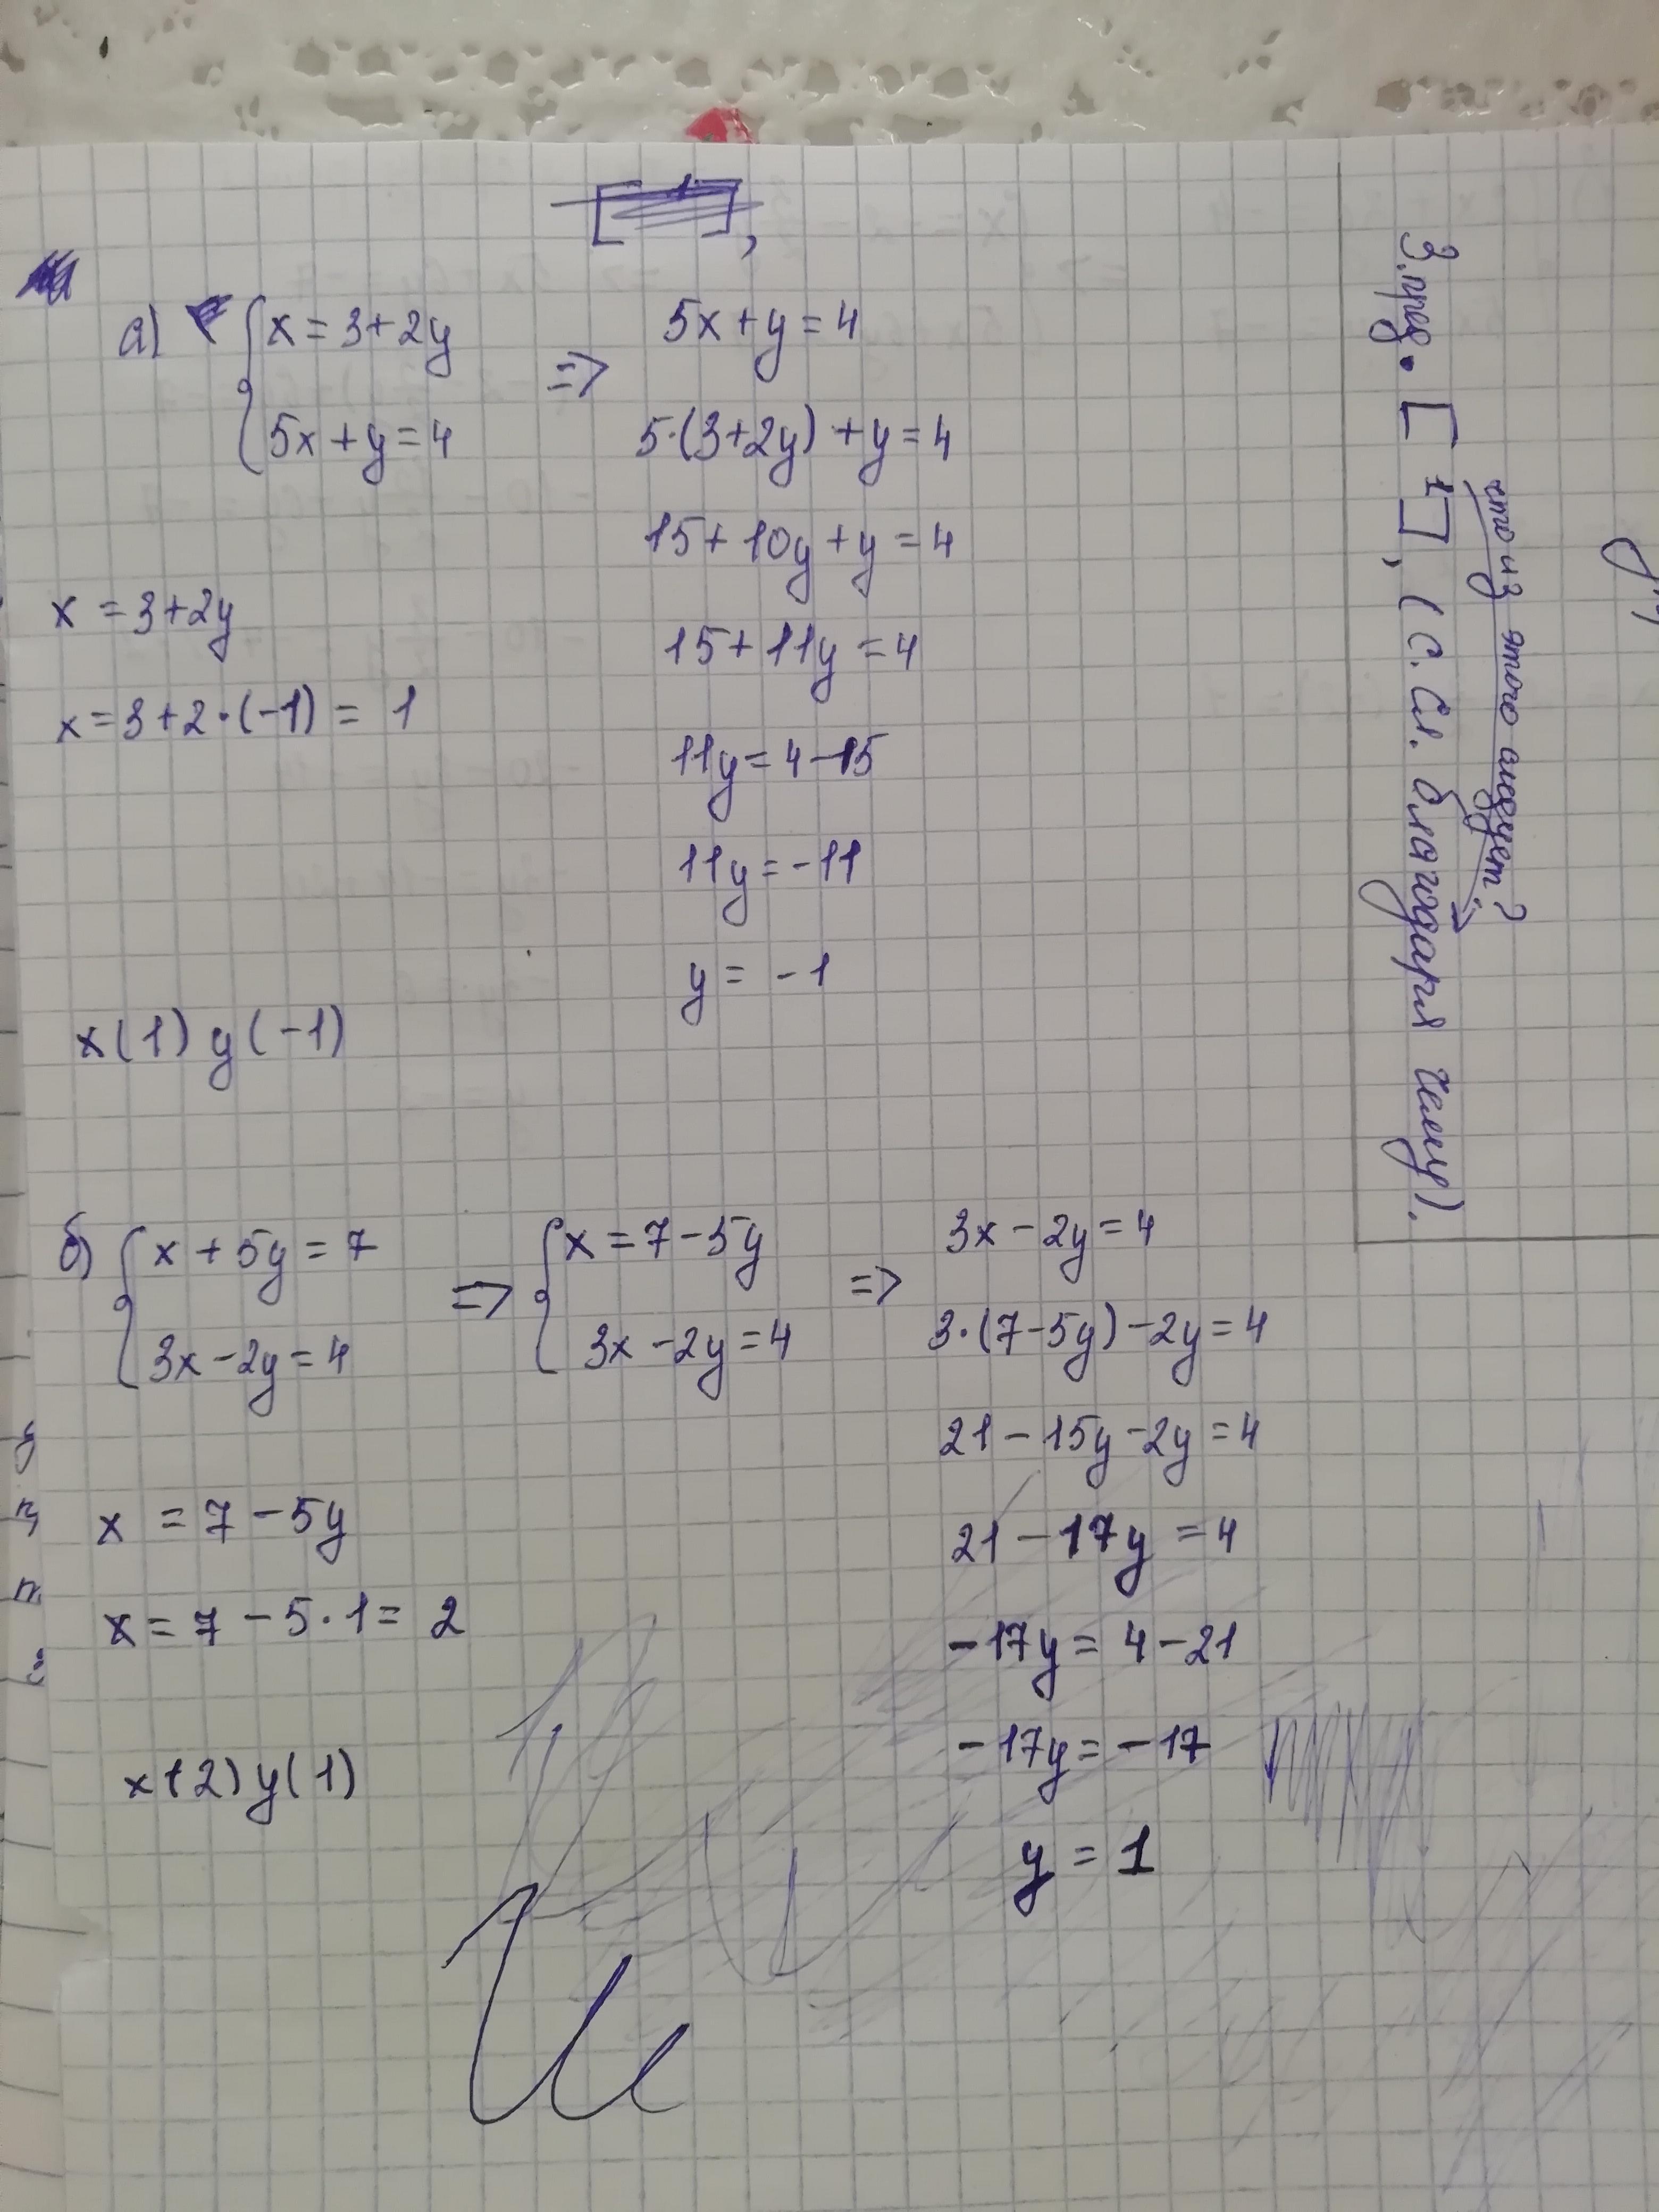 а) { x = 3 + 2y
5x + y = 4
=>
5x + y = 4
5·(3+2y) + y = 4
15 + 10y + y = 4
15 + 11y = 4
11y = 4 - 15
11y = -11
y = -1
x = 3 + 2y
x = 3 + 2·(-1) = 1
x(1) y(-1)
б) { x + 5y = 7
3x - 2y = 4
=> { x = 7 - 5y
3x - 2y = 4
=>
3x - 2y = 4
3·(7-5y) - 2y = 4
21 - 15y - 2y = 4
21 - 17y = 4
-17y = 4 - 21
-17y = -17
y = 1
x = 7 - 5y
x = 7 - 5·1 = 2
x(2) y(1)
что из этого следует?
3. пред. [ 1 ], (с. сл. благодаря чему).